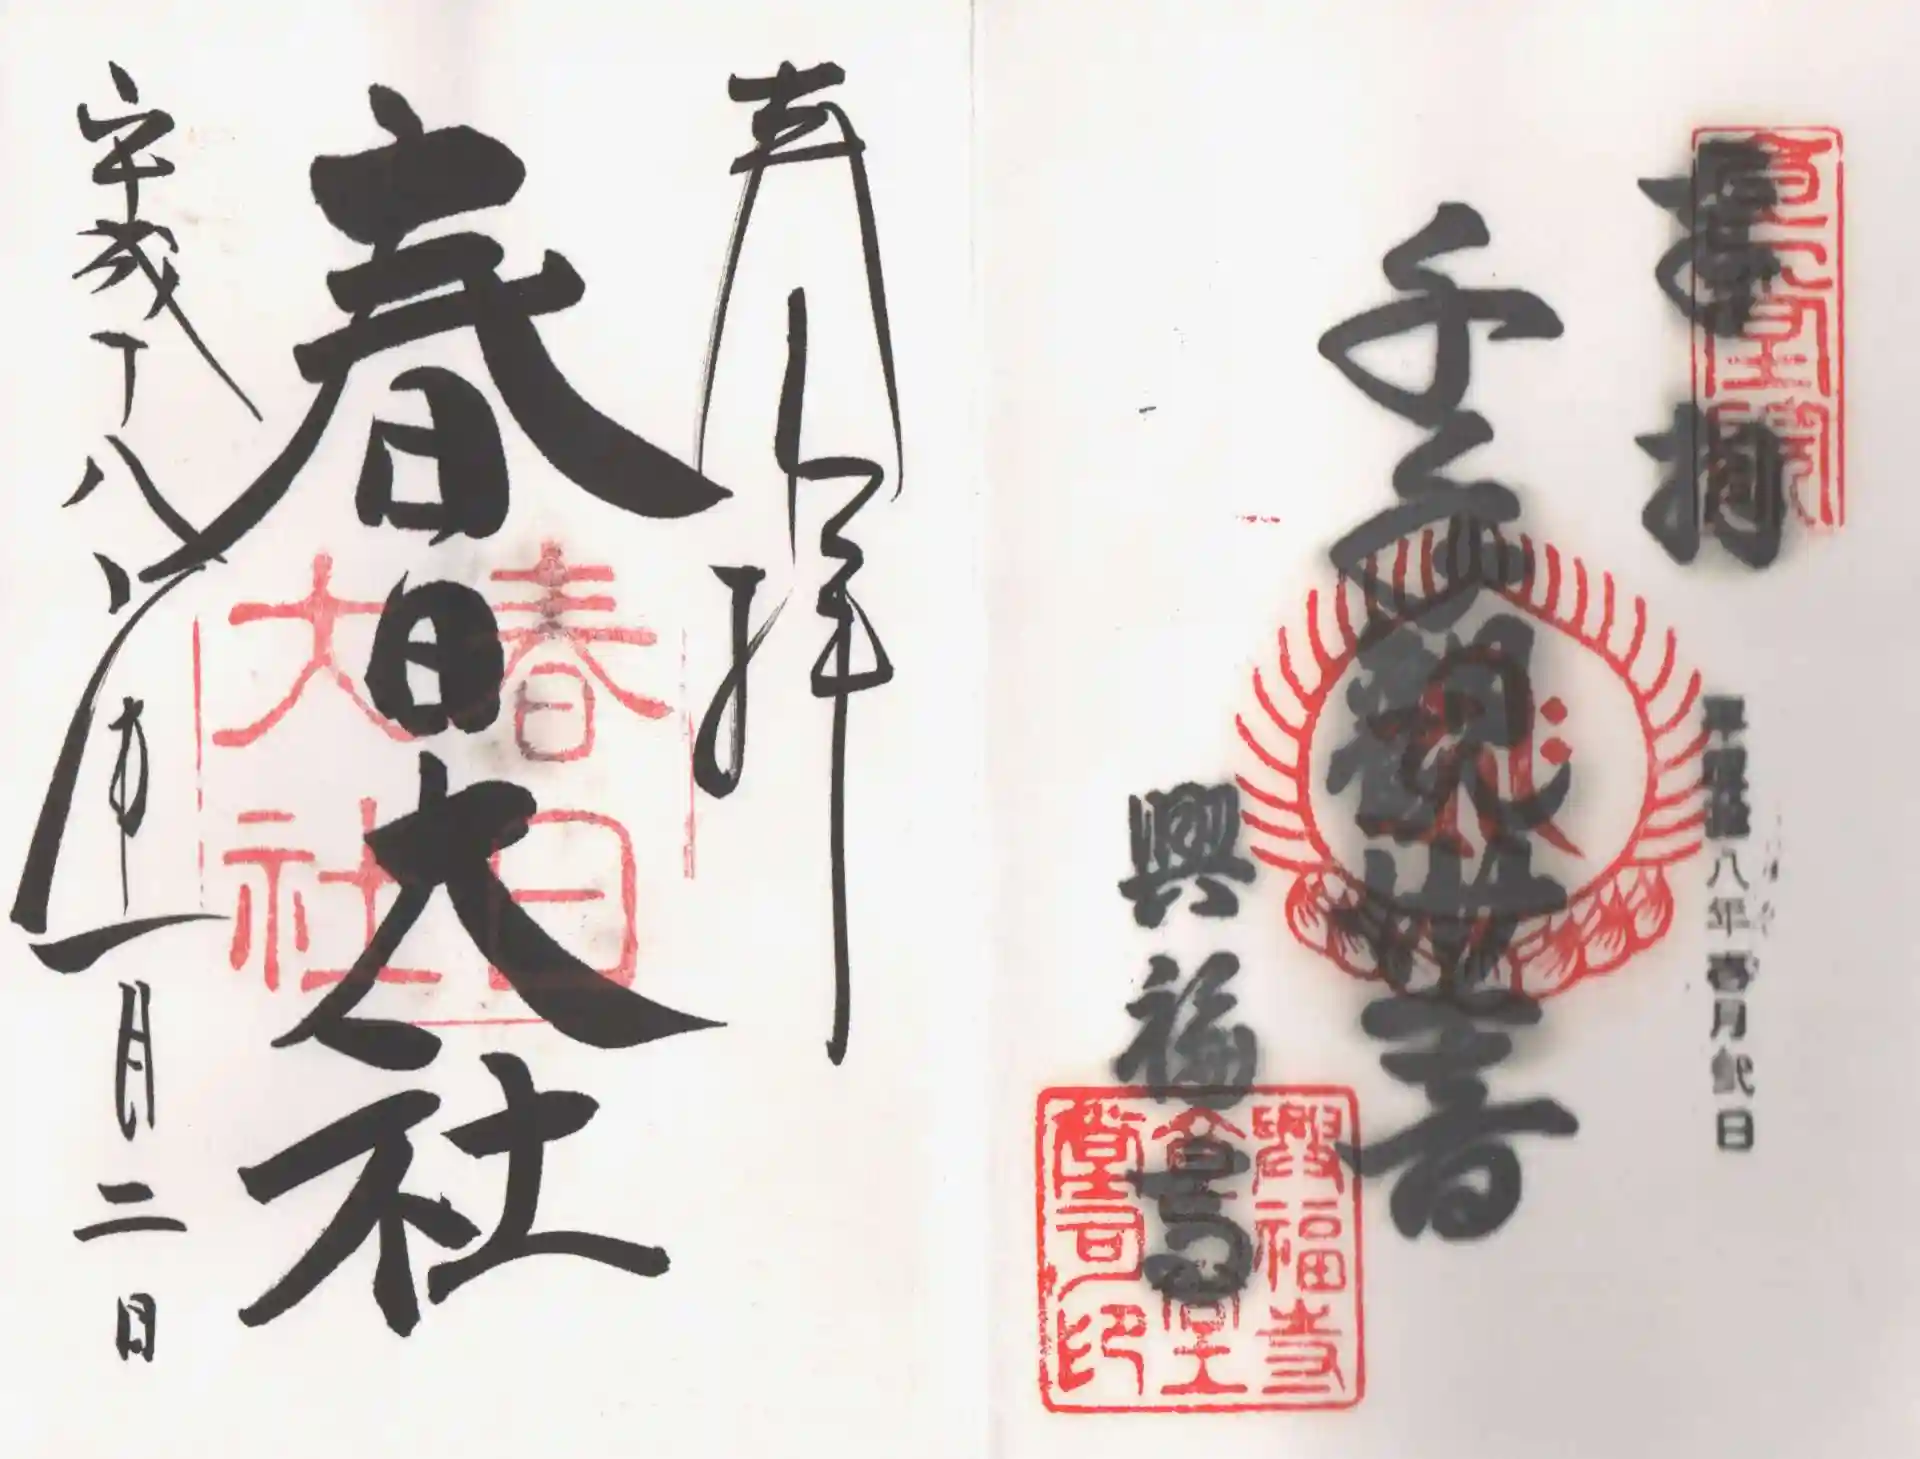 奉拝
平成拾八年壱月弐日
千手観世音
興福寺
興福寺
堂司印
奉拝
春日大社
春日
大社
平成十八年一月二日